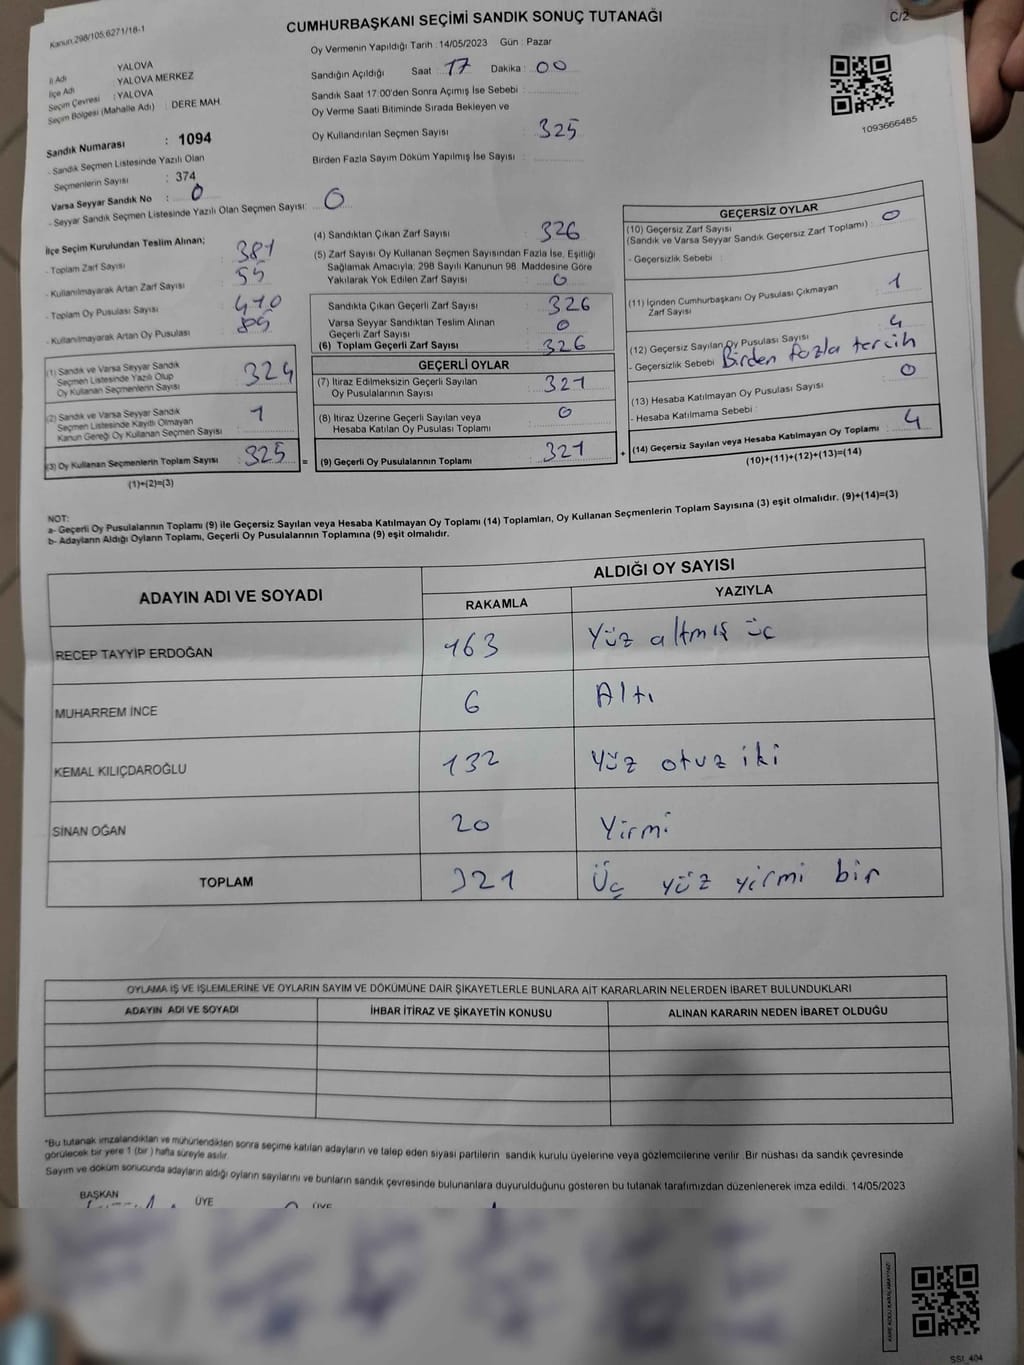 Kanun:298/105,6271/18-1
CUMHURBAŞKANI SEÇİMİ SANDIK SONUÇ TUTANAĞI
C/2
Oy Vermenin Yapıldığı Tarih : 14/05/2023 Gün : Pazar
İl Adı : YALOVA
İlçe Adı : YALOVA MERKEZ
Seçim Çevresi : YALOVA
Seçim Bölgesi (Mahalle Adı) : DERE MAH.
Sandık Numarası : 1094
- Sandık Seçmen Listesinde Yazılı Olan
Seçmenlerin Sayısı : 374
Varsa Seyyar Sandık No : 0
- Seyyar Sandık Seçmen Listesinde Yazılı Olan Seçmen Sayısı: 0
Sandığın Açıldığı Saat : 17 Dakika : 00
Sandık Saat 17:00'den Sonra Açımış İse Sebebi :
Oy Verme Saati Bitiminde Sırada Bekleyen ve
Oy Kullandırılan Seçmen Sayısı : 325
Birden Fazla Sayım Döküm Yapılmış İse Sayısı :
1093666485
İlçe Seçim Kurulundan Teslim Alınan;
- Toplam Zarf Sayısı 381
- Kullanılmayarak Artan Zarf Sayısı 55
- Toplam Oy Pusulası Sayısı 410
- Kullanılmayarak Artan Oy Pusulası
(1) Sandık ve Varsa Seyyar Sandık
Seçmen Listesinde Yazılı Olup
Oy Kullanan Seçmenlerin Sayısı 324
(2) Sandık ve Varsa Seyyar Sandık
Seçmen Listesinde Kayıtlı Olmayan
Kanun Gereği Oy Kullanan Seçmen Sayısı 1
(3) Oy Kullanan Seçmenlerin Toplam Sayısı 325
(1)+(2)=(3)
(4) Sandıktan Çıkan Zarf Sayısı 326
(5) Zarf Sayısı Oy Kullanan Seçmen Sayısından Fazla İse, Eşitliği
Sağlamak Amacıyla; 298 Sayılı Kanunun 98. Maddesine Göre
Yakılarak Yok Edilen Zarf Sayısı 0
Sandıkta Çıkan Geçerli Zarf Sayısı 326
Varsa Seyyar Sandıktan Teslim Alınan
Geçerli Zarf Sayısı 0
(6) Toplam Geçerli Zarf Sayısı 326
GEÇERLİ OYLAR
(7) İtiraz Edilmeksizin Geçerli Sayılan
Oy Pusulalarının Sayısı 321
(8) İtiraz Üzerine Geçerli Sayılan veya
Hesaba Katılan Oy Pusulası Toplamı 0
= (9) Geçerli Oy Pusulalarının Toplamı 321 +
GEÇERSİZ OYLAR
(10) Geçersiz Zarf Sayısı 0
(Sandık ve Varsa Seyyar Sandık Geçersiz Zarf Toplamı) :
- Geçersizlik Sebebi :
(11) İçinden Cumhurbaşkanı Oy Pusulası Çıkmayan 1
Zarf Sayısı
(12) Geçersiz Sayılan Oy Pusulası Sayısı 4
- Geçersizlik Sebebi Birden fazla tercih
(13) Hesaba Katılmayan Oy Pusulası Sayısı 0
- Hesaba Katılmama Sebebi :
(14) Geçersiz Sayılan veya Hesaba Katılmayan Oy Toplamı 4
(10)+(11)+(12)+(13)=(14)
NOT:
a- Geçerli Oy Pusulalarının Toplamı (9) ile Geçersiz Sayılan veya Hesaba Katılmayan Oy Toplamı (14) Toplamları, Oy Kullanan Seçmenlerin Toplam Sayısına (3) eşit olmalıdır. (9)+(14)=(3)
b- Adayların Aldığı Oyların Toplamı, Geçerli Oy Pusulalarının Toplamına (9) eşit olmalıdır.
ADAYIN ADI VE SOYADI
ALDIĞI OY SAYISI
RAKAMLA YAZIYLA
RECEP TAYYİP ERDOĞAN 163 Yüz altmış üç
MUHARREM İNCE 6 Altı
KEMAL KILIÇDAROĞLU 132 Yüz otuz iki
SİNAN OĞAN 20 Yirmi
TOPLAM 321 Üç yüz yirmi bir
OYLAMA İŞ VE İŞLEMLERİNE VE OYLARIN SAYIM VE DÖKÜMÜNE DAİR ŞİKAYETLERLE BUNLARA AİT KARARLARIN NELERDEN İBARET BULUNDUKLARI
ADAYIN ADI VE SOYADI İHBAR İTİRAZ VE ŞİKAYETİN KONUSU ALINAN KARARIN NEDEN İBARET OLDUĞU
*Bu tutanak imzalandıktan ve mühürlendikten sonra seçime katılan adayların ve talep eden siyasi partilerin sandık kurulu üyelerine veya gözlemcilerine verilir. Bir nüshası da sandık çevresinde
görülecek bir yere 1 (bir) hafta süreyle asılır.
Sayım ve döküm sonucunda adayların aldığı oyların sayılarını ve bunların sandık çevresinde bulunanlara duyurulduğunu gösteren bu tutanak tarafımızdan düzenlenerek imza edildi. 14/05/2023
BAŞKAN ÜYE ÜYE